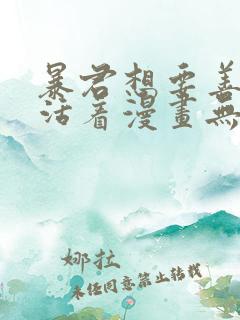 暴君想要善
活看漫畫無
娜拉
未经同意禁止转载